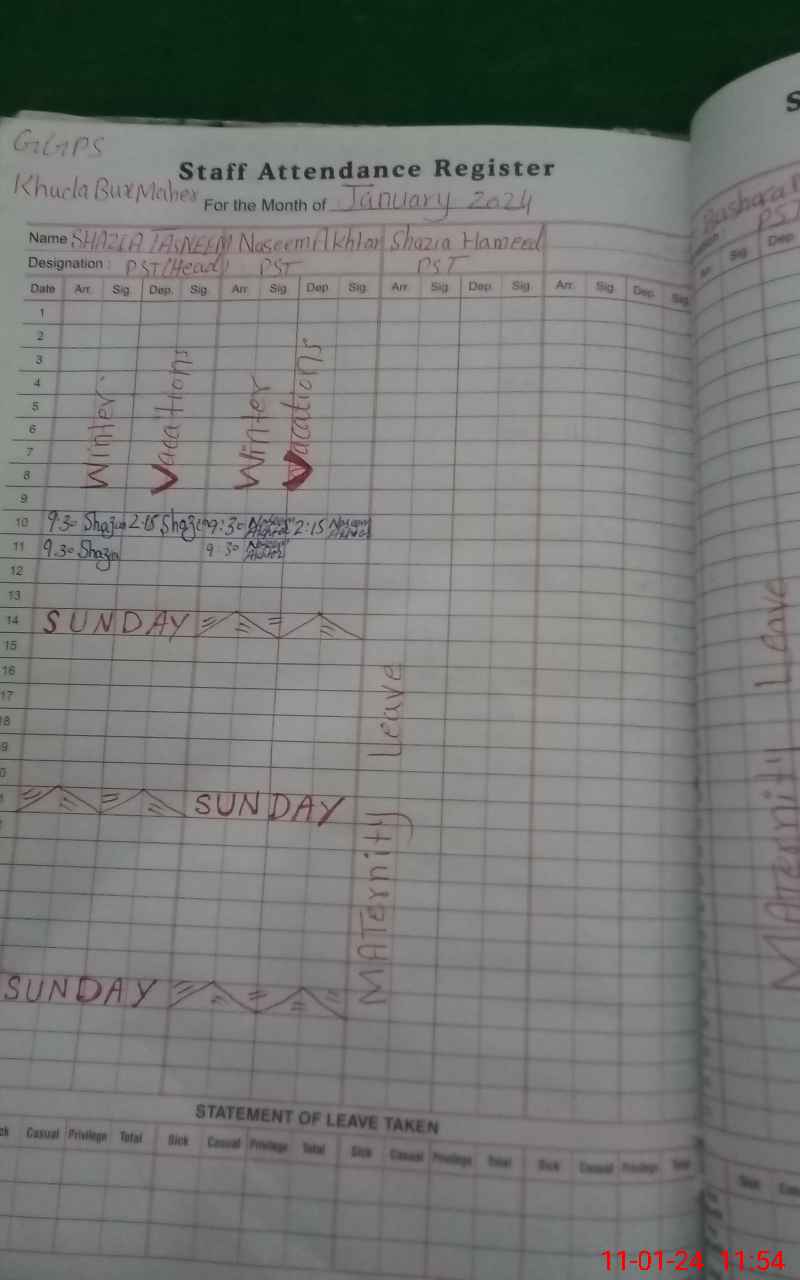 GGPS
Staff Attendance Register
Khuda Bux Maher
For the Month of January 2024
Name SHAZIA TASNEEM Naseem Akhtar Shazia Hameed
Designation : PST (Head) PST PST
Date Arr. Sig. Dep. Sig. Arr. Sig. Dep. Sig. Arr. Sig. Dep. Sig. Arr. Sig. Dep. Sig.
1
2
3
4
5
6
7
8
Winter Vacations Winter Vacations
9
10 9:30 Shazia 2:15 Shazia 9:30 Naseem Akhtar 2:15 Naseem Akhtar
11 9.30 Shazia 9:30 Naseem Akhtar
12
13
14 SUNDAY
15
16
17
18
9
0
SUNDAY
MATernity Leave
SUNDAY
STATEMENT OF LEAVE TAKEN
Casual Privilege Total Sick Casual Privilege Total Sick Casual Privilege Total Sick Casual Privilege Total
S
Bushara
PST
Arr. Sig. Dep.
MATernity Leave
11-01-24 11:54